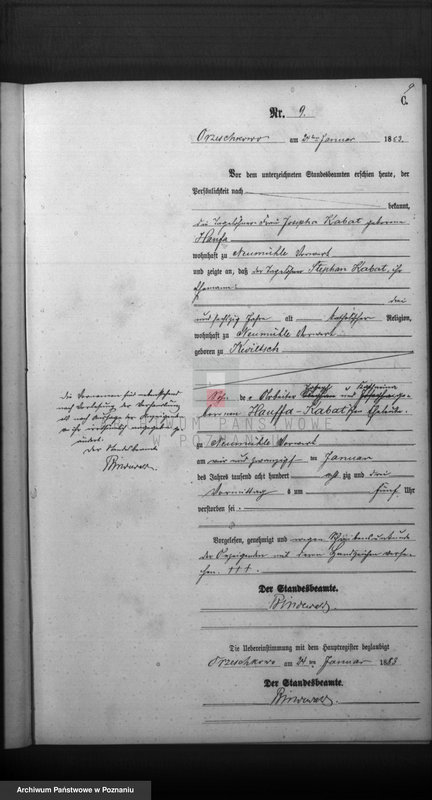 9
C.
Nr. 9.
Orzeschkowo am 24ten Januar 1883.
Vor dem unterzeichneten Standesbeamten erschien heute, der
Persönlichkeit nach
bekannt,
die Tagelöhner Frau Josepha Kabat geborene
Haufa
wohnhaft zu Neumühle Vorwerk
und zeigte an, daß der Tagelöhner Stephan Kabat, ihr
Ehemann
drei
und sechszig Jahre alt katholischer Religion,
wohnhaft zu Neumühle Vorwerk
geboren zu Kwiltsch
Sohn der Arbeiter und
Hauffa-Kabat'schen Eheleute
zu Neumühle Vorwerk
am vier und zwanzigsten Januar
des Jahres tausend acht hundert achtzig und drei
Vormittag s um fünf Uhr
verstorben sei
Vorgelesen, genehmigt und wegen Schreibensunkunde
der Anzeigenden mit deren Handzeichen versehen
+++.
Der Standesbeamte.
Bindewald.
Die Uebereinstimmung mit dem Hauptregister beglaubigt
Orzeschkowo am 24 ten Januar 1883
Der Standesbeamte.
Bindewald.
Die Vornamen sind
nach Vorlesung der Verhandlung
nach Aussage der Anzeigenden
geändert.
Der Standesbeamte
Bindewald.
ARCHIWUM PAŃSTWOWE
W POZNANIU
Archiwum Państwowe w Poznaniu